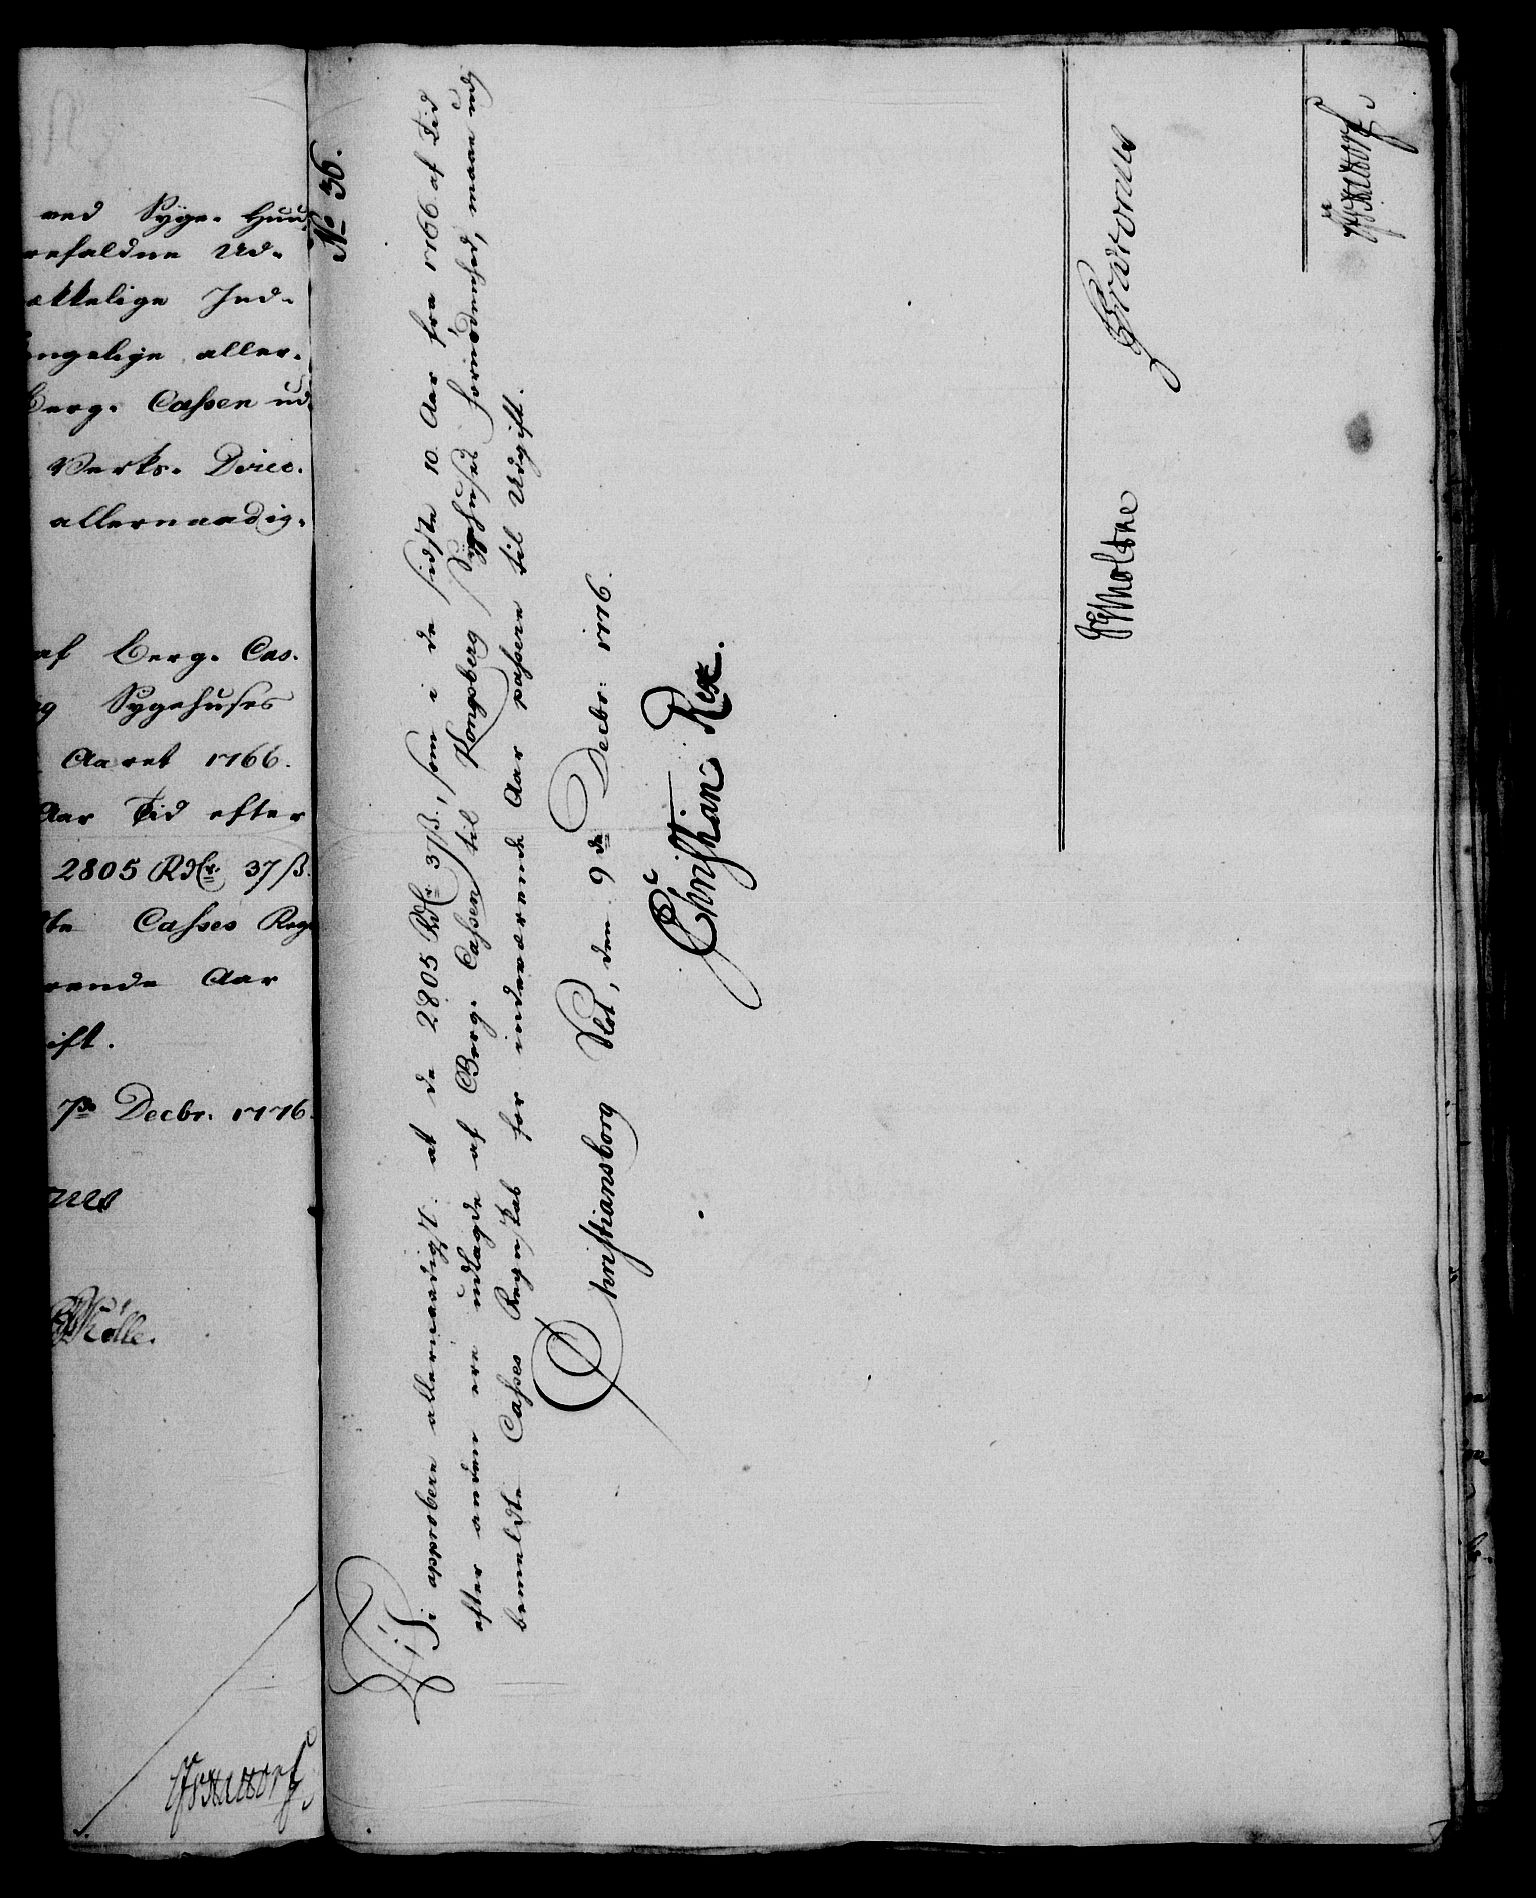 ved Syge-Huu
refaldne Ud-
ekkelige Ind-
ængelige aller-
Berg-Cassen ud
Verks-Direc-
allernaadig-
af Berg-Cas-
g Sygehuses
Aaret 1766.
Aar Tid efter
2805 Rdlr. 37 ß.
te Casses Reg
rende Aar
ift.
7de Decbr. 1776.
No 36.
Vi approbere allernaadigst: at de 2805 Rdlr. 37 ß., som i de sidste 10 Aar fra 1766 af Tid
efter anden ere udlagde af Berg-Cassen til Kongsberg Sygehuses fornødenhed, maae udj
bemeldte Casses Regnskab for indeværende Aar passere til Udgift.
Christiansborg Slot, den 9de Decbr: 1776.
Christian Rex.